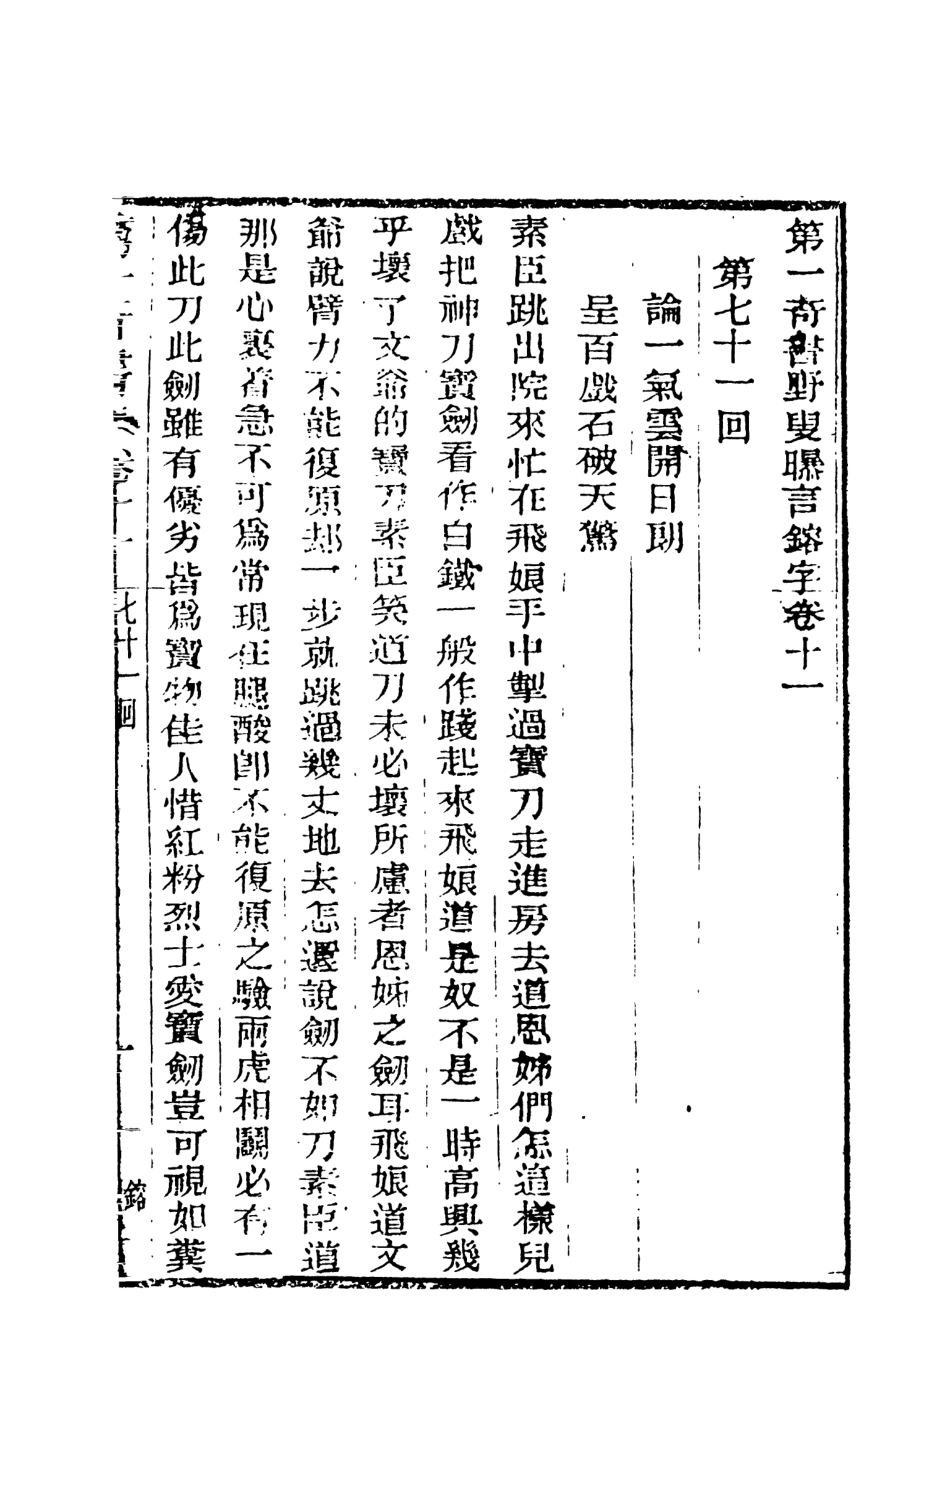 第一奇書野叟曝言鎔字卷十一
第七十一回
論一氣雲開日朗
呈百戲石破天驚
素臣跳出院來忙在飛娘手中掣過寶刀走進房去道恩姊們怎這樣兒
戲把神刀寶劒看作白鐵一般作踐起來飛娘道是奴不是一時高興幾
乎壞了文爺的寶刀素臣笑道刀未必壞所慮者恩姊之劒耳飛娘道文
爺說臂力不能復原却一步就跳過幾丈地去怎還說劒不如刀素臣道
那是心裏着急不可爲常現在腿酸卽不能復原之驗兩虎相鬭必有一
傷此刀此劒雖有優劣皆爲寶物佳人惜紅粉烈士愛寶劒豈可視如糞
七十一回
鎔